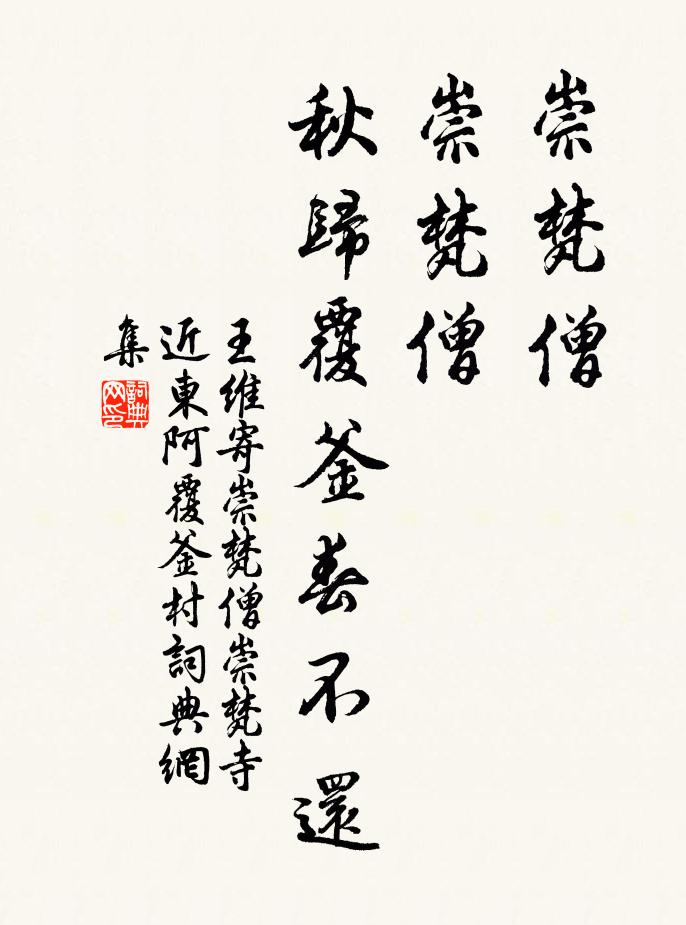 崇梵僧
崇梵僧
秋歸覆釜春不還
王維寄崇梵僧崇梵寺
近東阿覆釜村詞典網
集
詞典
网印